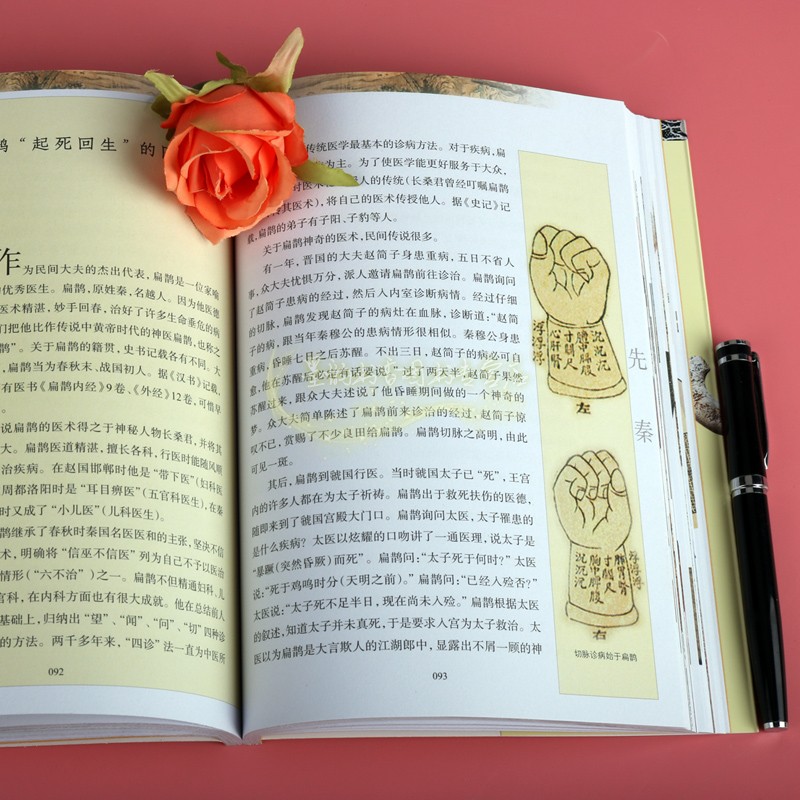 鹊“起死回生”的
作为民间大夫的杰出代表，扁鹊是一位家喻
的优秀医生。扁鹊，原姓秦，名越人。因为他医德
医术精湛，妙手回春，治好了许多生命垂危的病
们把他比作传说中黄帝时代的神医扁鹊，也称之
鹊”。关于扁鹊的籍贯，史书记载各有不同。大
扁鹊当为春秋末、战国初人。据《汉书》记载，
有医书《扁鹊内经》9卷、《外经》12卷，可惜早
。
说扁鹊的医术得之于神秘人物长桑君，并将其
大。扁鹊医道精湛，擅长各科，行医时能随风
治疗疾病。在赵国邯郸时他是“带下医”（妇科医
周都洛阳时是“耳目痹医”（五官科医生），在秦
时又成了“小儿医”（儿科医生）。
鹊继承了春秋时秦国名医医和的主张，坚决不信
术，明确将“信巫不信医”列为自己不予以医治
情形（“六不治”）之一。扁鹊不但精通妇科、儿
官科，在内科方面也有很大成就。他在总结前人
基础上，归纳出“望”、“闻”、“问”、“切”四种诊
的方法。两千多年来，“四诊”法一直为中医所
092
传统医学最基本的诊病方法。对于疾病，扁
为主。为了使医学能更好服务于大众，
对医术 人的传统（长桑君曾经叮嘱扁鹊
传其医术），将自己的医术传授他人。据《史记》记
载，扁鹊的弟子有子阳、子豹等人。
关于扁鹊神奇的医术，民间传说很多。
有一年，晋国的大夫赵简子身患重病，五日不省人
事，众大夫忧惧万分，派人邀请扁鹊前往诊治。扁鹊询问
了赵简子患病的经过，然后入内室诊断病情。经过仔细
的切脉，扁鹊发现赵简子的病灶在血脉，诊断道：“赵简
子的病，跟当年秦穆公的患病情形很相似。秦穆公身患
重病，昏睡七日之后苏醒。不出三日，赵简子的病必可自
愈，他在苏醒后必定有话要说。”过了两天半，赵简子果然
苏醒过来，跟众大夫述说了他昏睡期间做的一个神奇的
梦。众大夫简单陈述了扁鹊前来诊治的经过，赵简子惊
叹不已，赏赐了不少良田给扁鹊。扁鹊切脉之高明，由此
可见一斑。
其后，扁鹊到虢国行医。当时虢国太子已“死”，王宫
内的许多人都在为太子祈祷。扁鹊出于救死扶伤的医德，
随即来到了虢国宫殿大门口。扁鹊询问太医，太子罹患的
是什么疾病？太医以炫耀的口吻讲了一通医理，说太子是
“暴蹶（突然昏厥）而死”。扁鹊问：“太子死于何时？”太医
说：“死于鸡鸣时分（天明之前）。”扁鹊问：“已经入殓否？”
太医说：“太子死不足半日，现在尚未入殓。”扁鹊根据太医
的叙述，知道太子并未真死，于是要求入宫为太子救治。太
医以为扁鹊是大言欺人的江湖郎中，显露出不屑一顾的神
093
沉沉沉
寸關尺
心肝腎
浮浮浮
左
浮浮浮
寸關尺
沉沉沉
右
切脉诊病始于扁鹊
先秦